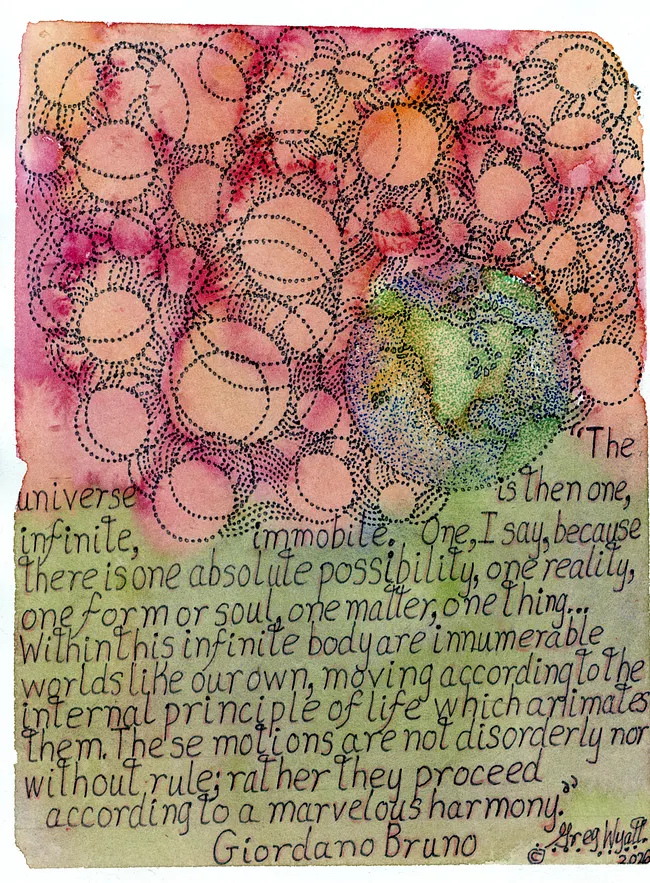 “The
universe is then one,
infinite, immobile. One, I say, because
there is one absolute possibility, one reality,
one form or soul, one matter, one thing...
Within this infinite body are innumerable
worlds like our own, moving according to the
internal principle of life which animates
them. These motions are not disorderly nor
without rule; rather they proceed
according to a marvelous harmony.”
Giordano Bruno
© Greg Wyatt
2026